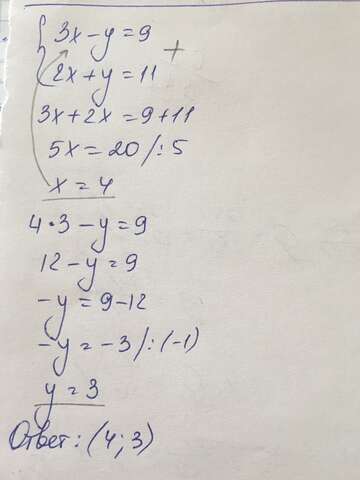 { 3x-y=9
2x+y=11 +
3x+2x=9+11
5x=20/:5
x=4
4·3-y=9
12-y=9
-y=9-12
-y=-3/:(-1)
y=3
Ответ: (4;3)